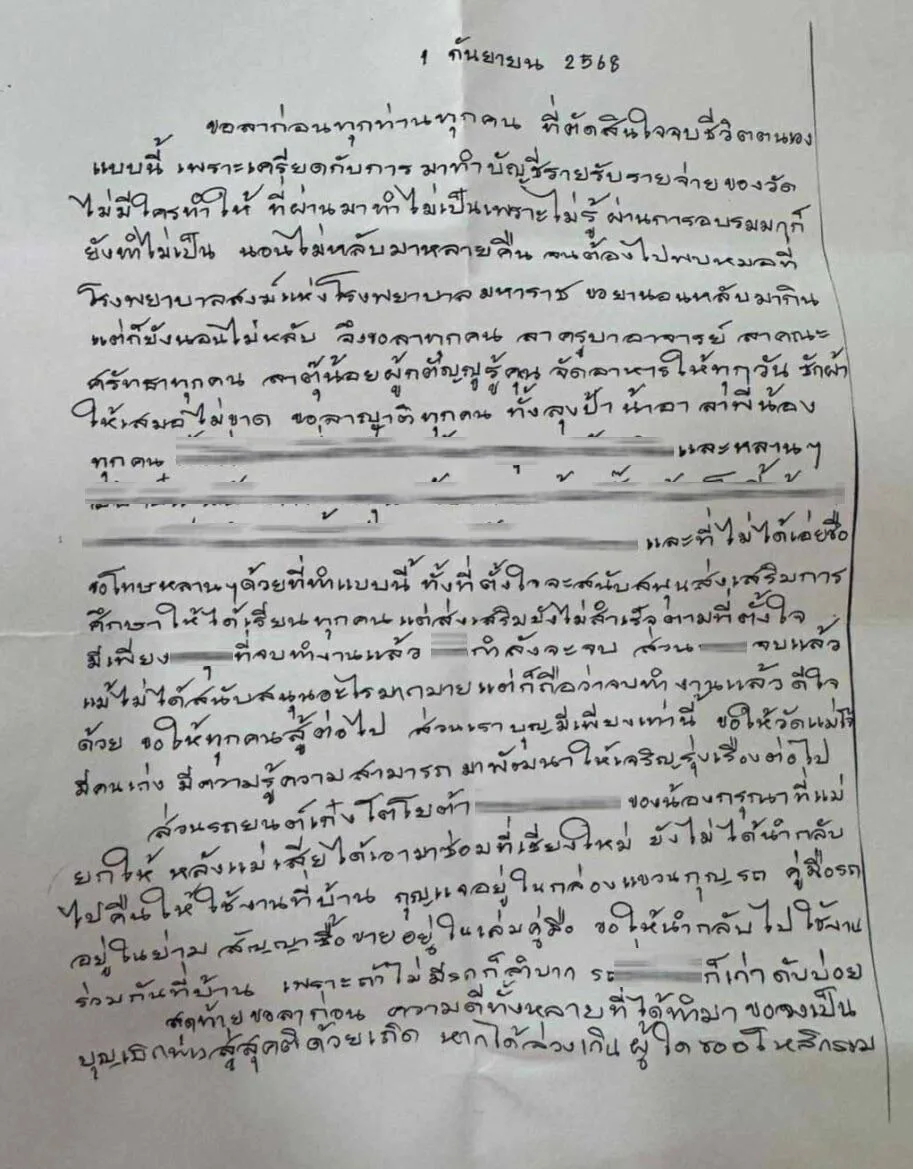 1 กันยายน 2568
ขอลาก่อนทุกท่านทุกคน ที่ตัดสินใจจบชีวิตตนเอง
แบบนี้ เพราะเครียดกับการ มาทำบัญชีรายรับรายจ่ายของวัด
ไม่มีใครทำให้ ที่ผ่านมาทำไม่เป็นเพราะไม่รู้ ผ่านการอบรมมาก็
ยังทำไม่เป็น นอนไม่หลับมาหลายคืน จนต้องไปพบหมอที่
โรงพยาบาลสงฆ์แห่งโรงพยาบาลมหาราช ขอยานอนหลับมากิน
แต่ก็ยังนอนไม่หลับ จึงขอลาทุกคน ลาครูบาอาจารย์ ลาคณะ
ศรัทธาทุกคน ลาตุ๊น้อยผู้กตัญญูรู้คุน จัดอาหารให้ทุกวัน ซักผ้า
ให้เสมอไม่ขาด ขอลาญาติทุกคน ทั้งลุงป้าน้าอา ลาพี่น้อง
ทุกคน และหลานๆ
และที่ไม่ได้เอ่ยชื่อ
ขอโทษหลานๆด้วยที่ทำแบบนี้ ทั้งที่ตั้งใจจะสนับสนุนส่งเสริมการ
ศึกษาให้ได้เรียนทุกคน แต่ส่งเสริมยังไม่สำเร็จตามที่ตั้งใจ
มีเพียง ที่จบทำงานแล้ว กำลังจะจบ ส่วน จบแล้ว
แม้ไม่ได้สนับสนุนอะไรมากมายแต่ก็ถือว่าจบทำงานแล้วดีใจ
ด้วย ขอให้ทุกคนสู้ต่อไป ส่วนเราบุญมีเพียงเท่านี้ ขอให้วัดแม่โจ้
มีคนเก่ง มีความรู้ความสามารถ มาพัฒนาให้เจริญรุ่งเรืองต่อไป
ส่วนรถยนต์เก๋งโตโยต้า ของน้องกรุณาที่แม่
ยกให้ หลังแม่เสียได้เอามาซ่อมที่เชียงใหม่ ยังไม่ได้นำกลับ
ไปคืนให้ใช้งานที่บ้าน กุญแจอยู่ในกล่องแขวนกุญรถ คู่มือรถ
อยู่ในย่าม สัญญาซื้อขายอยู่ในเล่มคู่มือ ขอให้นำกลับไปใช้งาน
ร่วมกันที่บ้าน เพราะถ้าไม่มีรถก็ลำบาก รถ ก็เก่าดับบ่อย
สุดท้ายขอลาก่อน ความดีทั้งหลายที่ได้ทำมา ขอจงเป็น
สู่สุคติด้วยเถิด หากได้ล่วงเกิน ผู้ใดขออโหสิกรรม